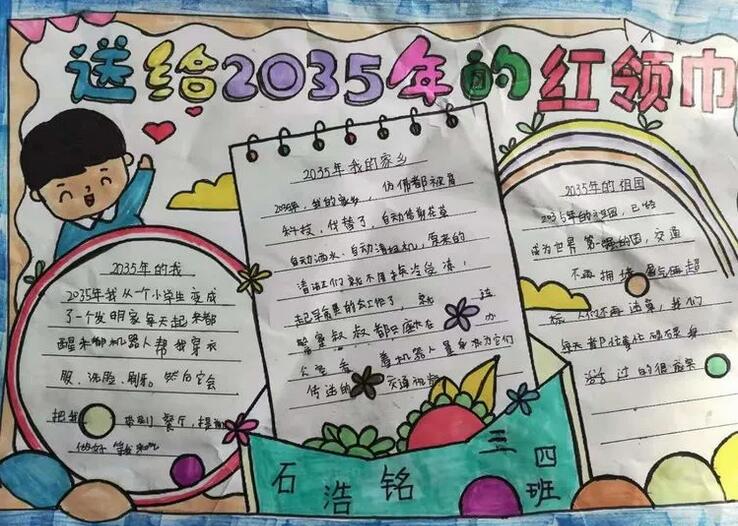 送给2035年的红领巾
2035年的我
2035年我从一个小学生变成
了一个发明家每天起来都
醒来都机器人帮我穿衣
服、洗脸、刷牙。然后它会
把我 带到餐厅,提前
做好等我来吃
2035年我的家乡
2035年,我的家乡,仿佛都被高
科技,代替了,自动修剪花草
自动洒水、自动清扫机,原来的
清洁工们就不用挨冷受冻,
起早贪黑的去工作了,就 连
警察叔叔都只座在 办
公室看 着机器人量身为它们
传送的 交通视频
2035年的祖国
2035年的祖国,已经
成为世界第一强的国,交通
不再拥堵 尾气俩超
标,人们不再逃单,我们
每天都
活 过的很
石浩铭
三四班